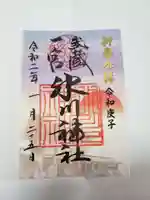 新春参拝
令和庚子
武蔵
一宮
氷川神社
令和二年一月二十五日